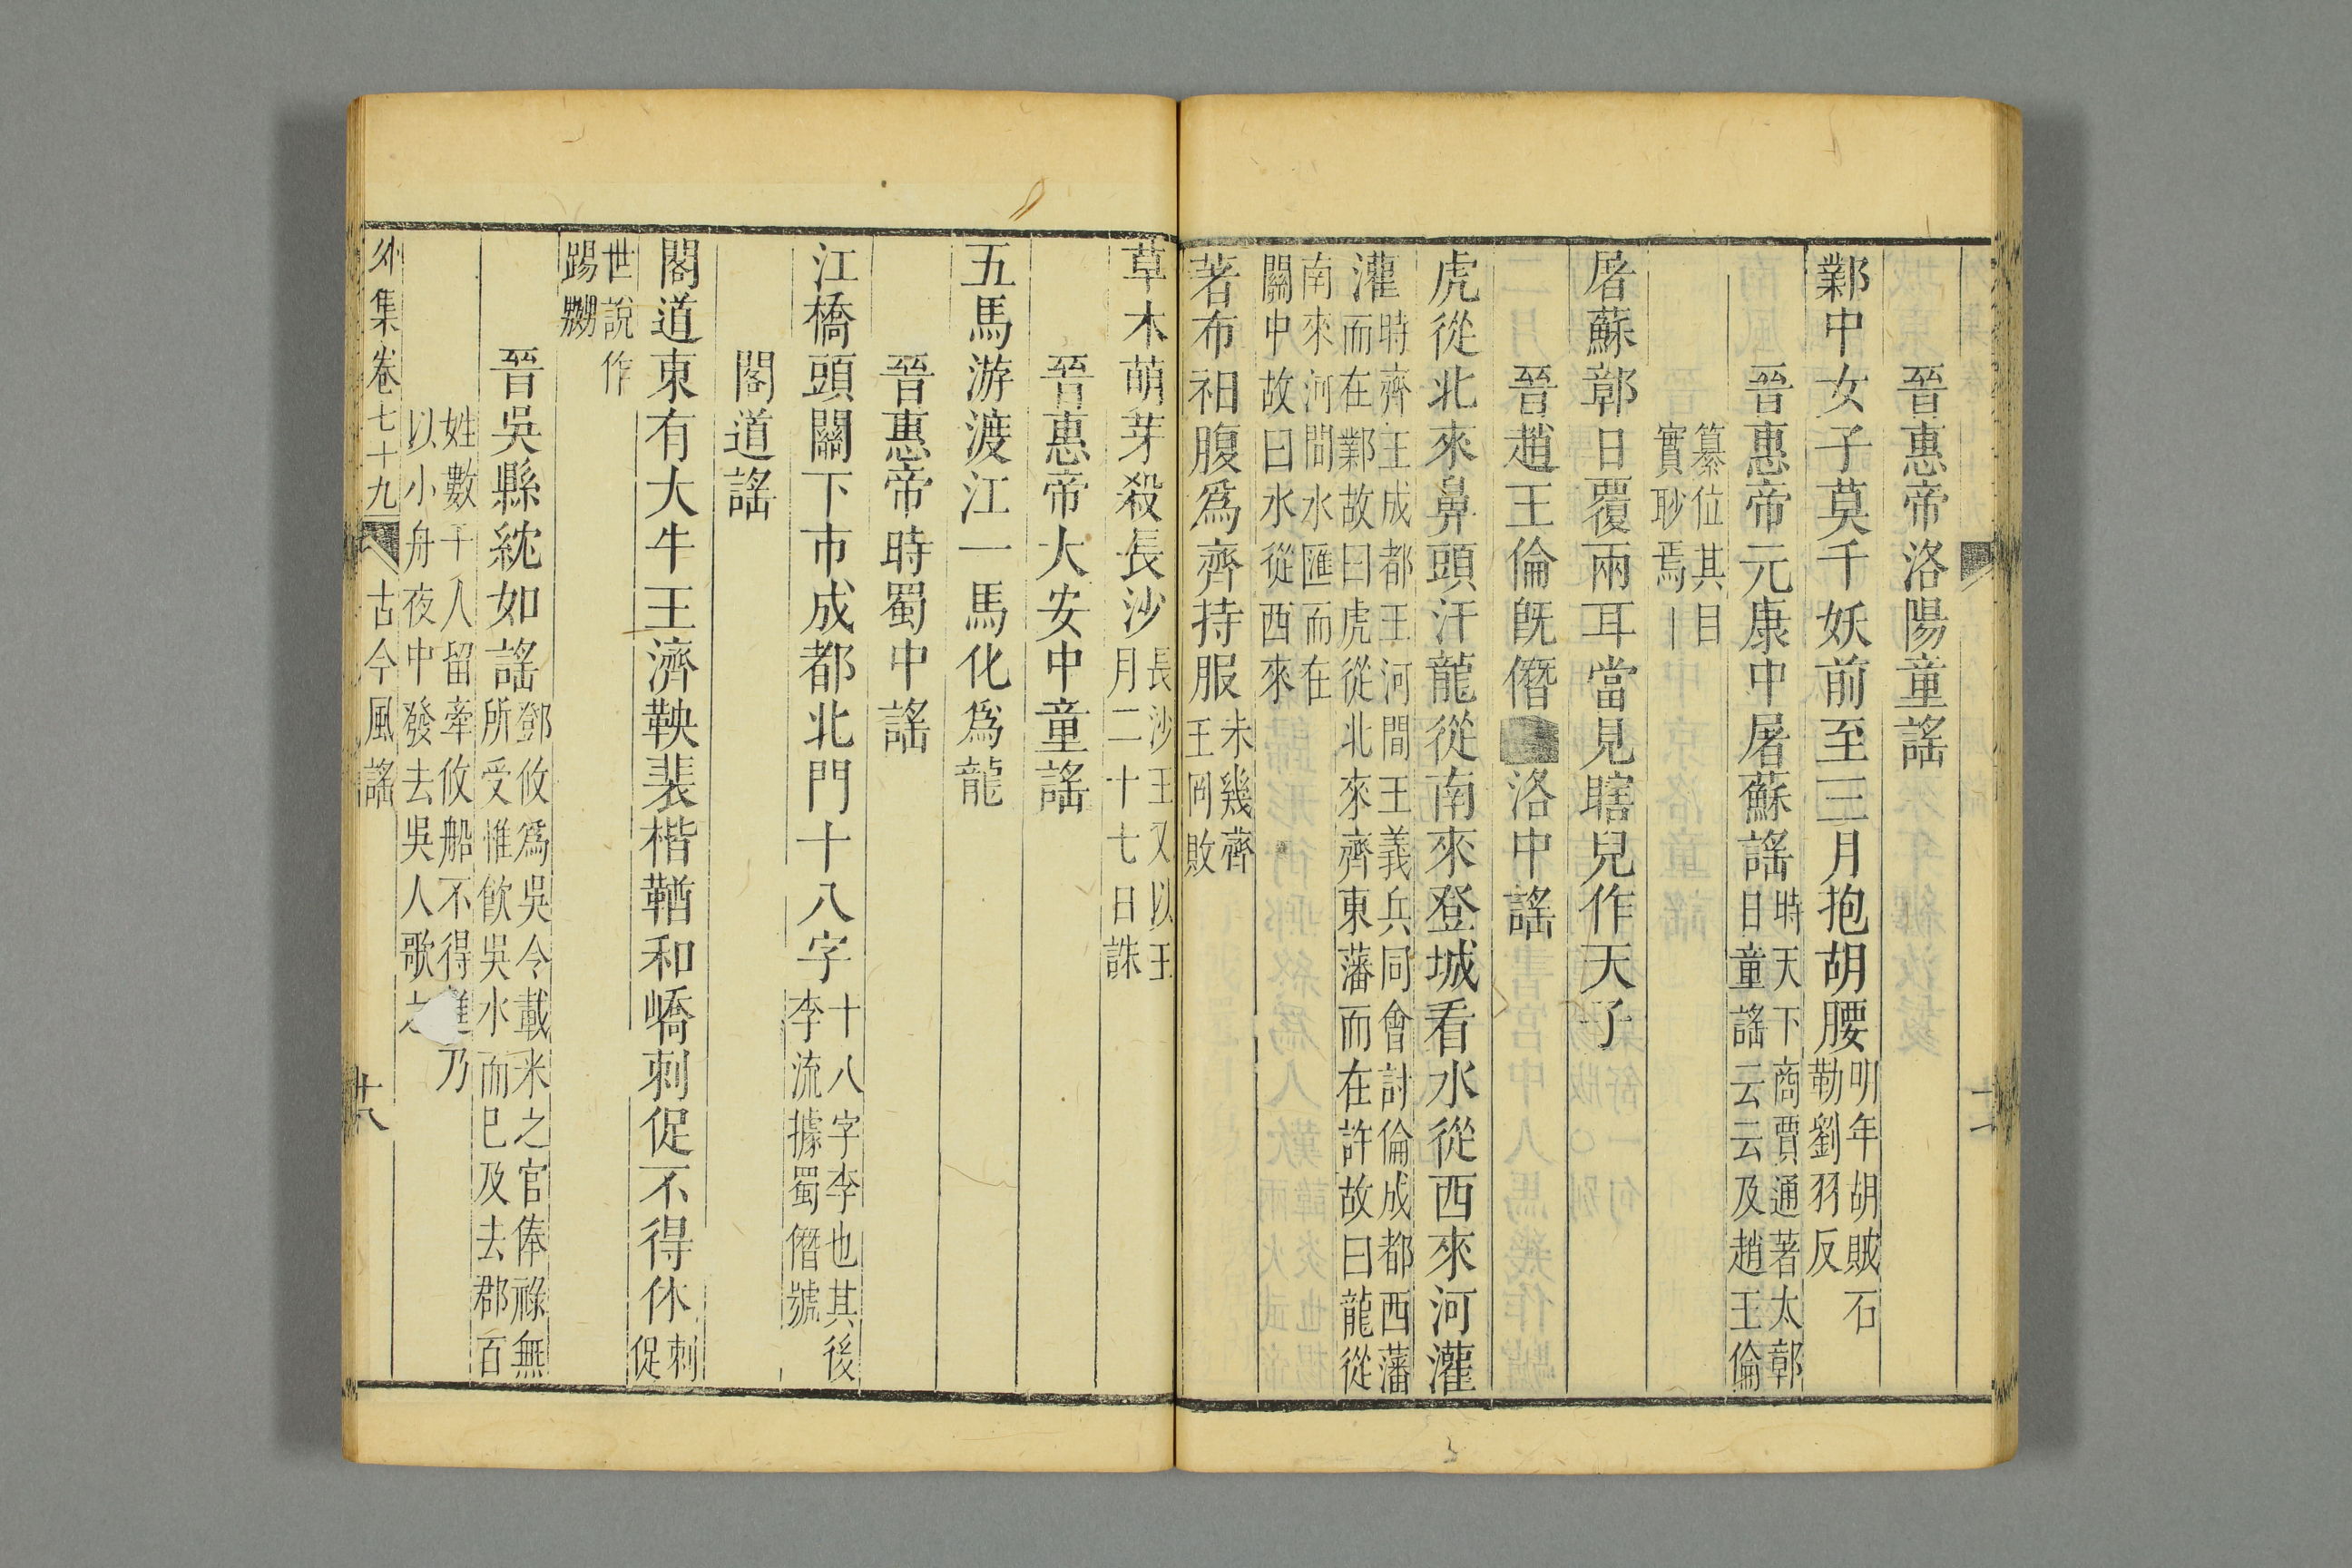 晉惠帝洛陽童謠
鄴中女子莫千妖前至三月抱胡腰明年胡賊石勒劉羽反
晉惠帝元康中屠蘇謠時天下商賈通著太鄣目童謠云云及趙王倫
篡位其目實眇焉
屠蘇鄣日覆兩耳當見瞎兒作天子
晉趙王倫旣僭洛中謠
虎從北來鼻頭汗龍從南來登城看水從西來河灌
灌時齊王成都王河間王義兵同會討倫成都西藩而在鄴故曰虎從北來齊東藩而在許故曰龍從
南來河間水匯而在關中故曰水從西來
著布袙腹爲齊持服未幾齊王冏敗
草木萌芽殺長沙長沙王乂以正月二十七日誅
晉惠帝大安中童謠
五馬游渡江一馬化爲龍
晉惠帝時蜀中謠
江橋頭闕下市成都北門十八字十八字李也其後李流據蜀僭號
閣道謠
閣道東有大牛王濟鞅裴楷鞧和嶠刺促不得休刺促
世說作踢嬲
晉吳縣紞如謠鄧攸爲吳令載米之官俸祿無所受惟飮吳水而已及去郡百
姓數千人留牽攸船不得進乃以小舟夜中發去吳人歌之
外集卷七十九 古今風謠 十八